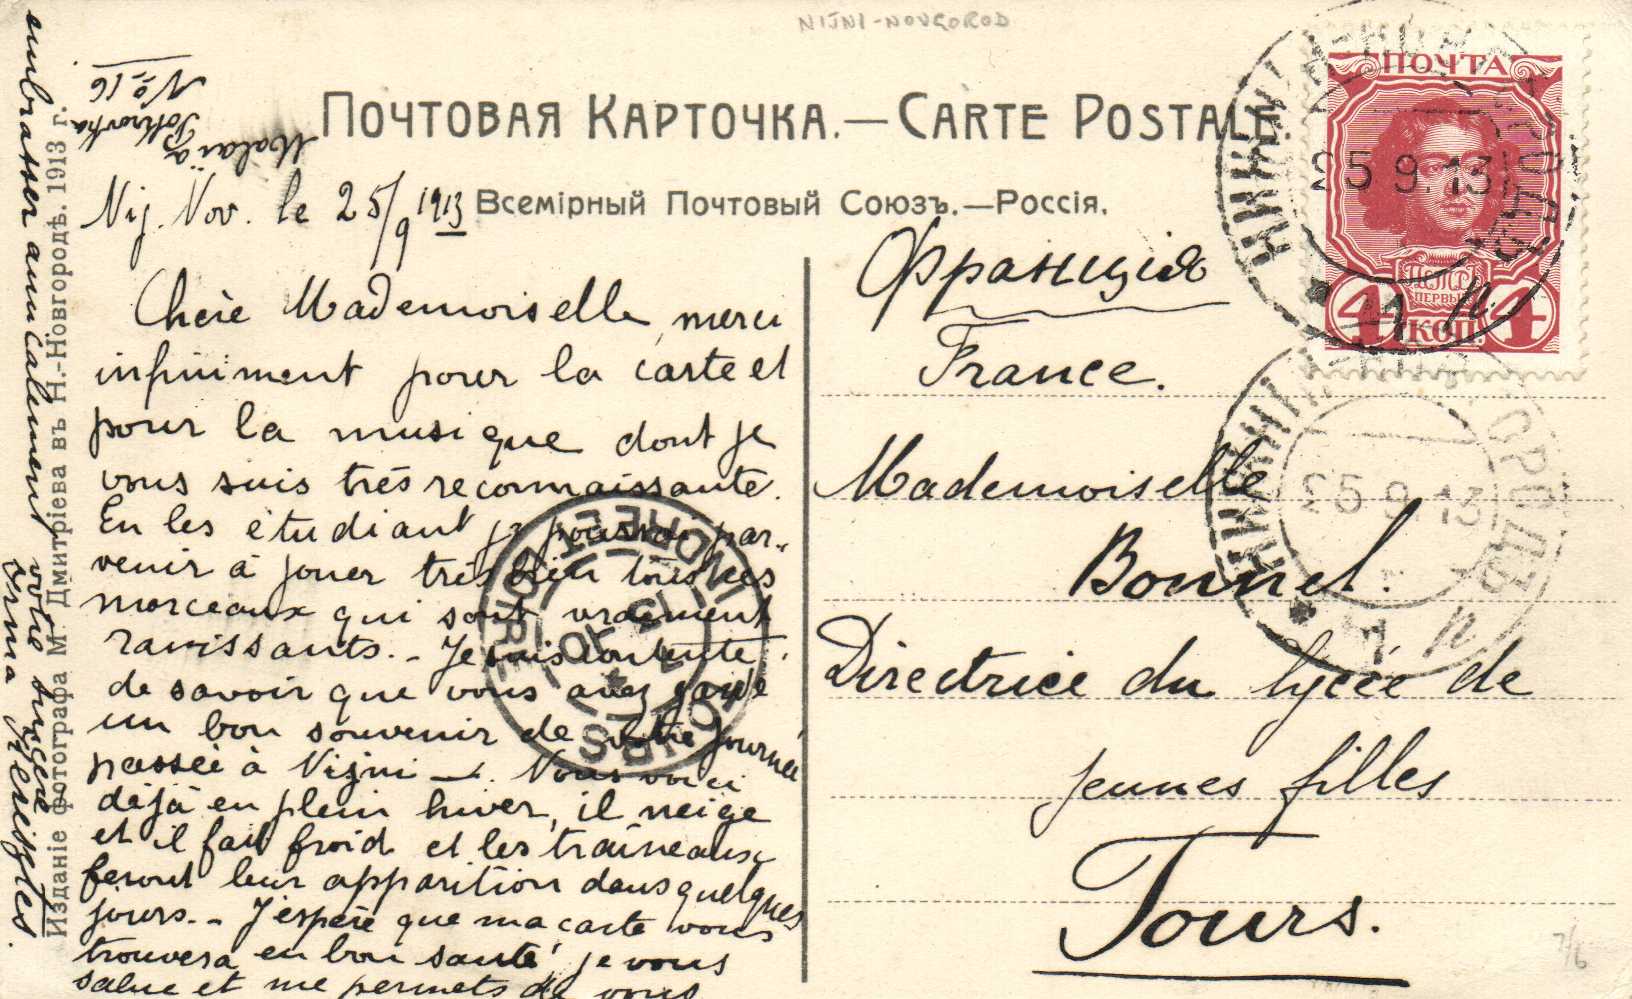 NIJNI-NOVGOROD
ПОЧТОВАЯ КАРТОЧКА.—CARTE POSTALE.
Всемірный Почтовый Союзъ.—Россія.
Malaïa
Pokrovka
№ 16
Nij. Nov. le 25/9 1913
Chère Mademoiselle, merci
infiniment pour la carte et
pour la musique dont je
vous suis très reconnaissante.
En les étudiant je pourrai par-
venir à jouer très bien tous ces
morceaux qui sont vraiment
ravissants.- Je suis contente
de savoir que vous avez gardé
un bon souvenir de votre journée
passée à Nijni —. Vous voici
déjà en plein hiver, il neige
et il fait froid et les traîneaux
feront leur apparition dans quelques
jours.- J'espère que ma carte vous
trouvera en bon santé, je vous
salue et me permets de vous
embrasser amicalement
votre sincère
Irma
Изданіе фотографа М. Дмитріева въ Н.-Новгородѣ. 1913 г.
Франція
France.
Mademoiselle
Bonnel.
Directrice du lycée de
jeunes filles
Tours.
ПОЧТА
ПЕРВЫЙ
4 КОП. 4
НИЖНІЙ-НОВГОРОДЪ
25 9.13
НИЖНІЙ
ГОРОДЪ
25 9.13
TOURS
INDRE ET LOIRE
7/6